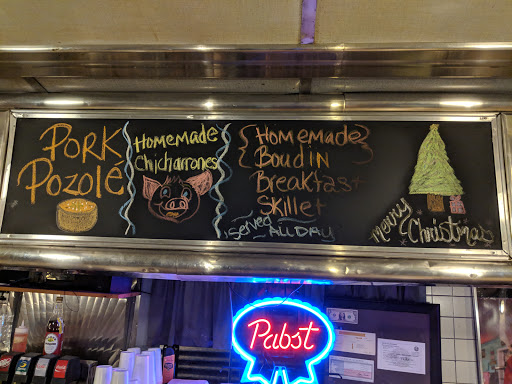 PORK
POZOLÉ
HOMEMADE
Chicharrones
HOMEMADE
BOUDIN
BREAKFAST
SKILLET
SERVED
ALL DAY
Merry
Christmas
Pabst